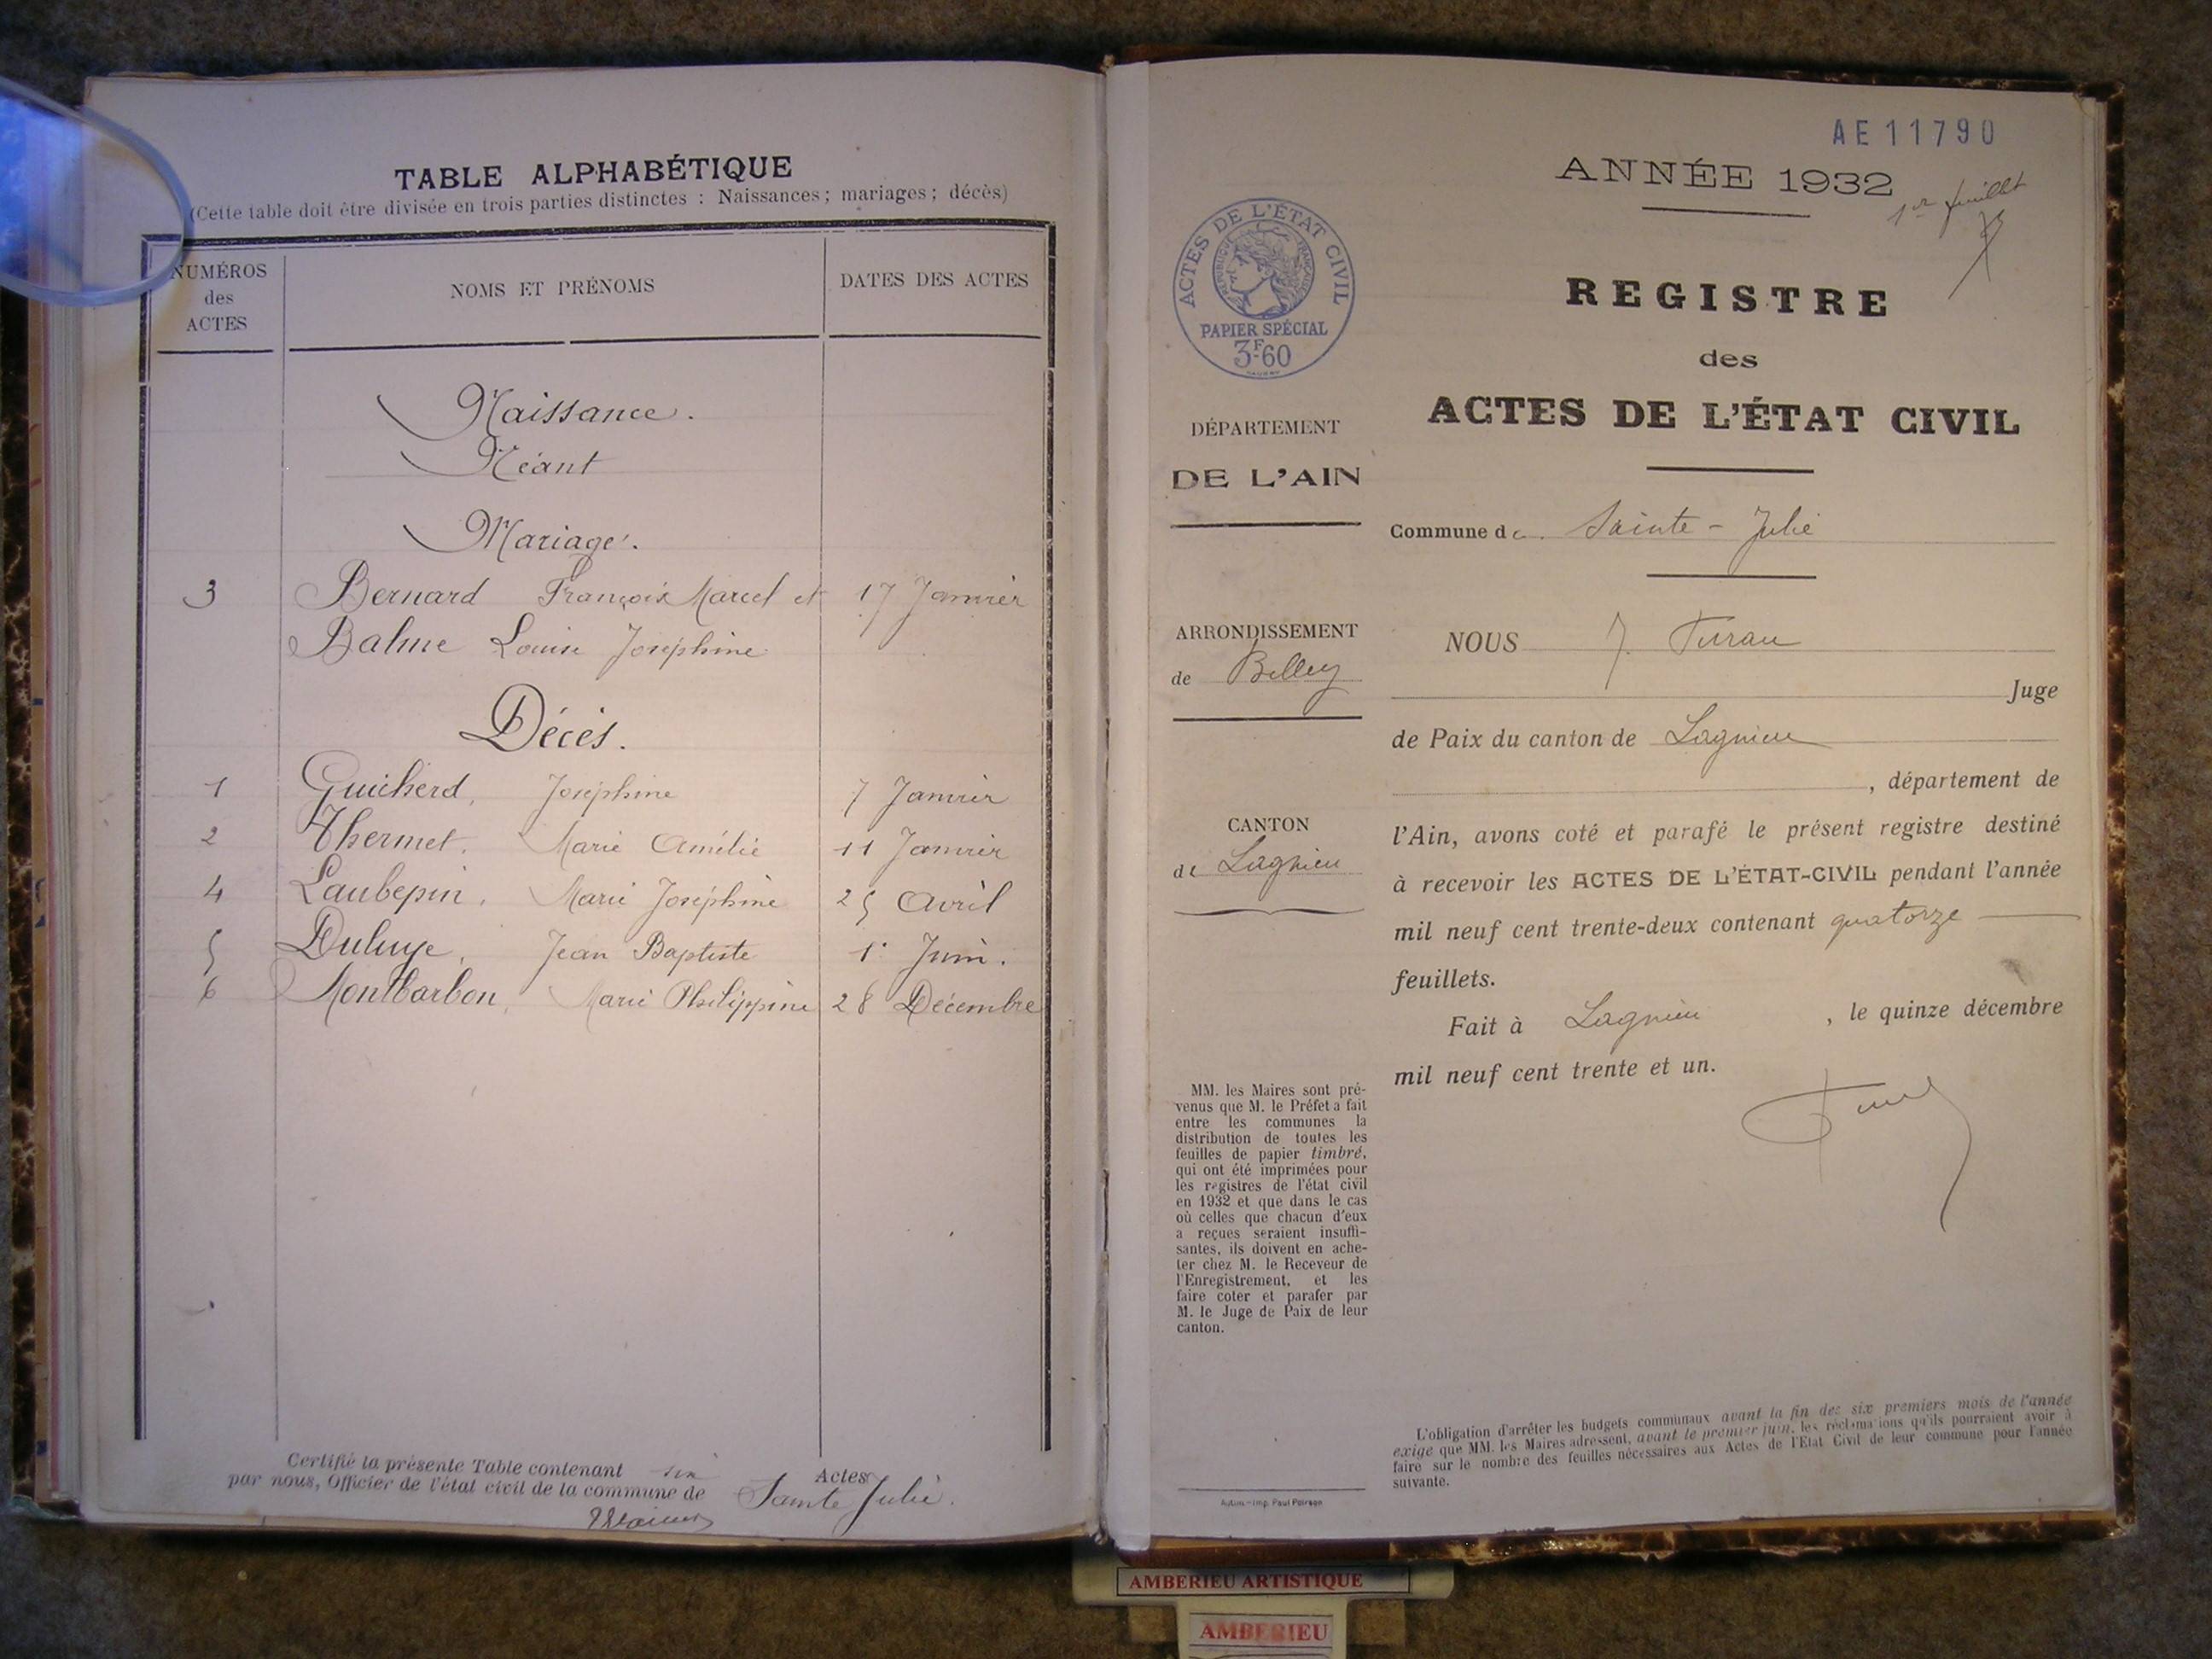 TABLE ALPHABÉTIQUE
(Cette table doit être divisée en trois parties distinctes : Naissances ; mariages ; décès)
NUMÉROS
des
ACTES
NOMS ET PRÉNOMS
DATES DES ACTES
Naissance.
Néant
Mariage.
3 Bernard François Marcel et 17 Janvier
Balme Louise Joséphine
Décès.
1 Guicherd, Joséphine 7 Janvier
2 Thermet, Marie Amélie 11 Janvier
4 Laubepin, Marie Joséphine 25 Avril
5 Jean Baptiste 1er Juin.
6 Montbarbon, Marie Philippine 28 Décembre
Certifié la présente Table contenant six Actes
par nous, Officier de l'état civil de la commune de Sainte Julie.
AE11790
ANNÉE 1932
1er feuillet
ACTES DE L'ÉTAT CIVIL
RÉPUBLIQUE FRANÇAISE
PAPIER SPÉCIAL
3F60
REGISTRE
des
ACTES DE L'ÉTAT CIVIL
DÉPARTEMENT
DE L'AIN
Commune de Sainte-Julie
ARRONDISSEMENT
de Belley
CANTON
de Lagnieu
NOUS J.
Juge
de Paix du canton de Lagnieu
, département de
l'Ain, avons coté et parafé le présent registre destiné
à recevoir les ACTES DE L'ÉTAT-CIVIL pendant l'année
mil neuf cent trente-deux contenant quatorze
feuillets.
Fait à Lagnieu, le quinze décembre
mil neuf cent trente et un.
MM. les Maires sont pré-
venus que M. le Préfet a fait
entre les communes la
distribution de toutes les
feuilles de papier timbré,
qui ont été imprimées pour
les registres de l'état civil
en 1932 et que dans le cas
où celles que chacun d'eux
a reçues seraient insuffi-
santes, ils doivent en ache-
ter chez M. le Receveur de
l'Enregistrement, et les
faire coter et parafer par
M. le Juge de Paix de leur
canton.
Autun.-Imp. Paul Poirson
L'obligation d'arrêter les budgets communaux avant la fin des six premiers mois de l'année
exige que MM. les Maires adressent, avant le premier juin, les réclamations qu'ils pourraient avoir à
faire sur le nombre des feuilles nécessaires aux Actes de l'Etat Civil de leur commune pour l'année
suivante.
AMBERIEU ARTISTIQUE
AMBERIEU